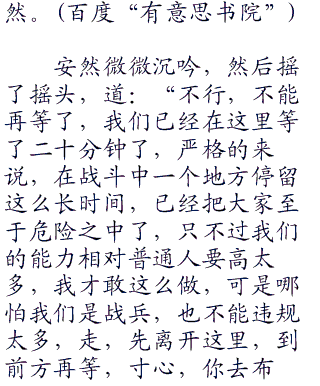 然。(百度“有意思书院”)
安然微微沉吟，然后摇
了摇头，道：“不行，不能
再等了，我们已经在这里等
了二十分钟了，严格的来
说，在战斗中一个地方停留
这么长时间，已经把大家至
于危险之中了，只不过我们
的能力相对普通人要高太
多，我才敢这么做，可是哪
怕我们是战兵，也不能违规
太多，走，先离开这里，到
前方再等，寸心，你去布